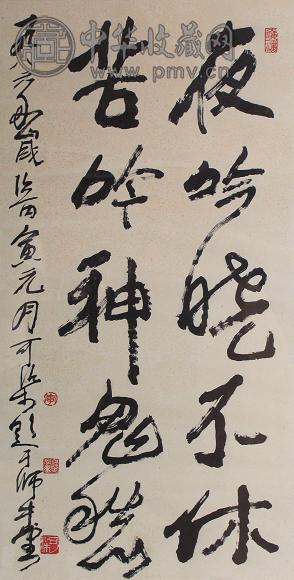 中华收藏网
www.pmv.cn
夜吟晓不休
苦吟神鬼愁
寅元月可染题于师牛堂